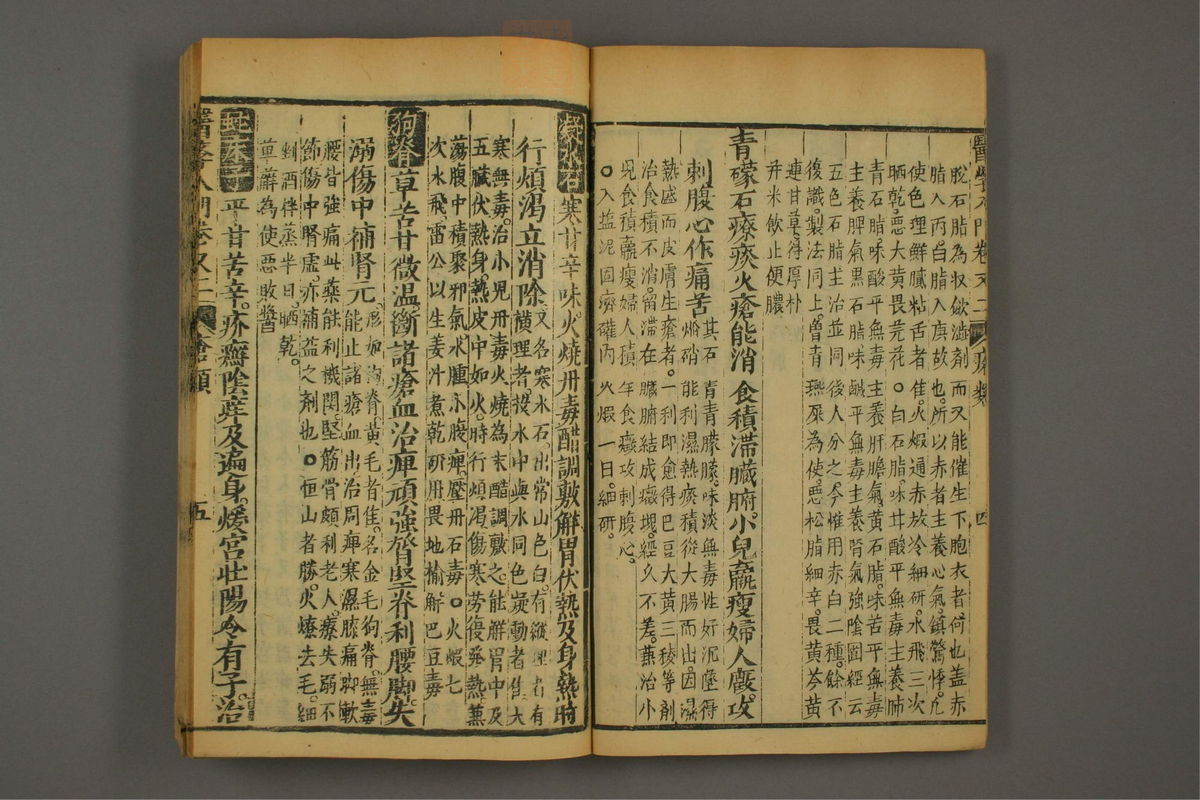 醫學入門卷又二 瘡類 四
脫石脂為収歛澁劑而又能催生下胞衣者何也盖赤
脂入丙白脂入庚故也所以赤者主養心氣鎮驚悸凡
使色理鮮膩粘舌者佳火煆通赤放冷細研水飛三次
晒乾惡大黃畏芫花○白石脂味甘酸平無毒主養肺
青石脂味酸平無毒主養肝膽氣黃石脂味苦平無毒
主養脾氣黑石脂味鹹平無毒主養腎氣強陰固經云
五色石脂主治並同後人分之今惟用赤白二種餘不
復識製法同上曾青燕屎為使惡松脂細辛畏黃芩黃
連甘草得厚朴
并米飲止便膿
青礞石療痰火瘡能消食積滯臟腑小兒羸瘦婦人癥攻
刺腹心作痛苦
其石青青朦朦味淡無毒性好沉墜得
焔硝能利濕熱痰積從大腸而出因濕
熱盛而皮膚生瘡者一利即愈得巴豆大黃三稜等劑
治食積不消留滯在臟腑結成癥塊經久不差兼治小
兒食積羸瘦婦人積年食癥攻刺腹心
○入盐泥固濟確內火煆一日細研
凝水石寒甘辛味火燒丹毒醋調敷解胃伏熱及身熱時
行煩渴立消除
又名寒水石出常山色白有縱理者有
橫理者投水中與水同色凝動者佳大
寒無毒治小児丹毒火燒為末醋調敷之能解胃中及
五臟伏熱身熱皮中如火時行煩渴傷寒劳復發熱兼
蕩腹中積聚邪氣水腫小腹痺壓丹石毒○火煆七
次水飛雷公以生姜汁煮乾研用畏地榆解巴豆毒
狗脊草苦甘微溫斷諸瘡血治痺頑強膂堅脊利腰脚失
溺傷中補腎元
形如狗脊黃毛者佳名金毛狗脊無毒
能止諸瘡血出治周痺寒濕膝痛脚軟
腰背強痛此藥能利機関堅筋骨頗利老人療失弱不
節傷中腎虛亦補益之劑也○恒山者勝火燎去毛細
剉酒拌蒸半日晒乾
萆薢為使惡敗醬
平甘苦辛疥癬陰痒及遍身煖宮壯陽令有子治
醫學入門卷又二 瘡類 五